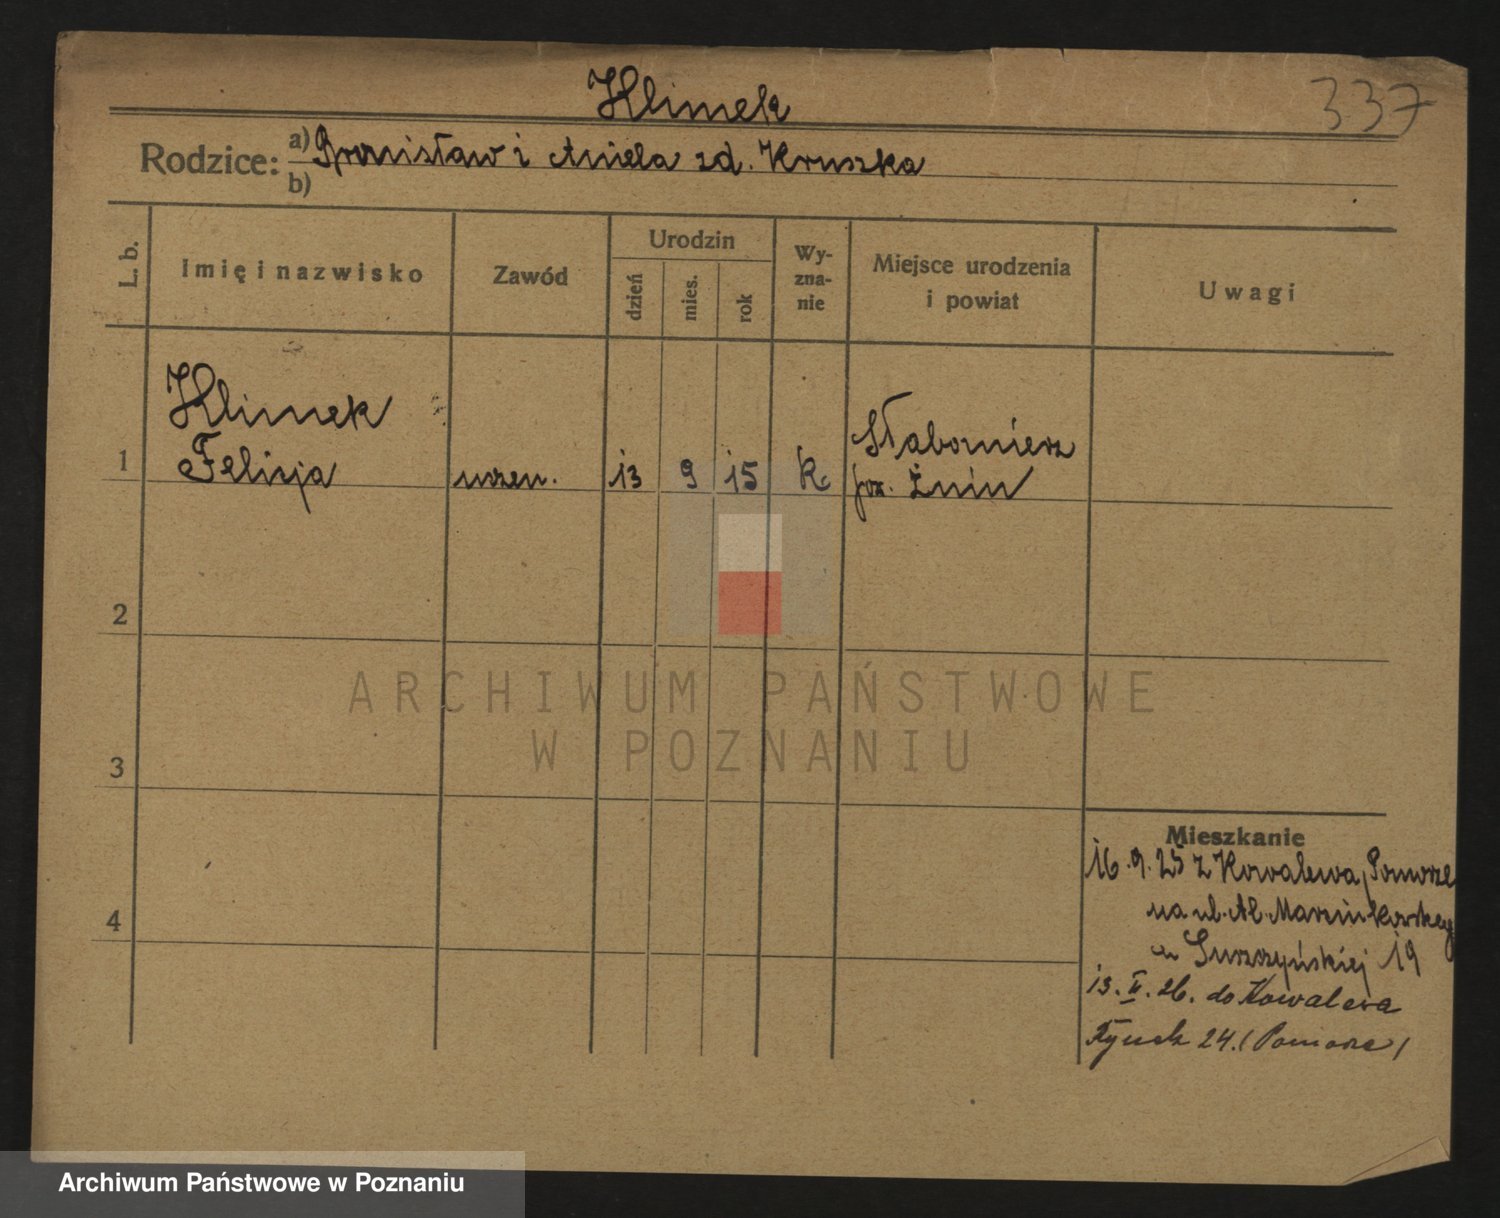 Klimek
337
Rodzice: a) Bronisław i Aniela zd. Kruszka
b)
L. b.
Imię i nazwisko
Zawód
Urodzin
dzień
mies.
rok
Wy-
zna-
nie
Miejsce urodzenia
i powiat
Uwagi
Klimek
1 Felicja uczen. 13 9 15 k.
Słabomierz
pow. Żnin
2
3
4
ARCHIWUM PAŃSTWOWE
W POZNANIU
Mieszkanie
16.9.25 z Kowalewa, Pomorze
na ul. Al. Marcinkowskiego
19
13.II.26. do Kowalewa
Rynek 24. (Pomorze)
Archiwum Państwowe w Poznaniu